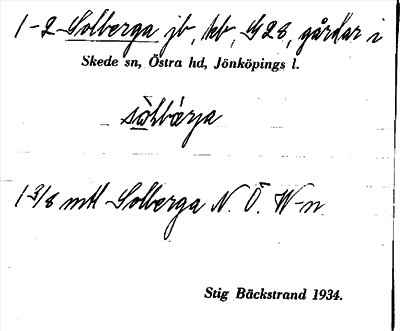 1-2 Solberga jb, kb, 1928, gårdar i
Skede sn, Östra hd, Jönköpings l.
1 3/8 mtl Solberga N. Ö. W-n
Stig Bäckstrand 1934.